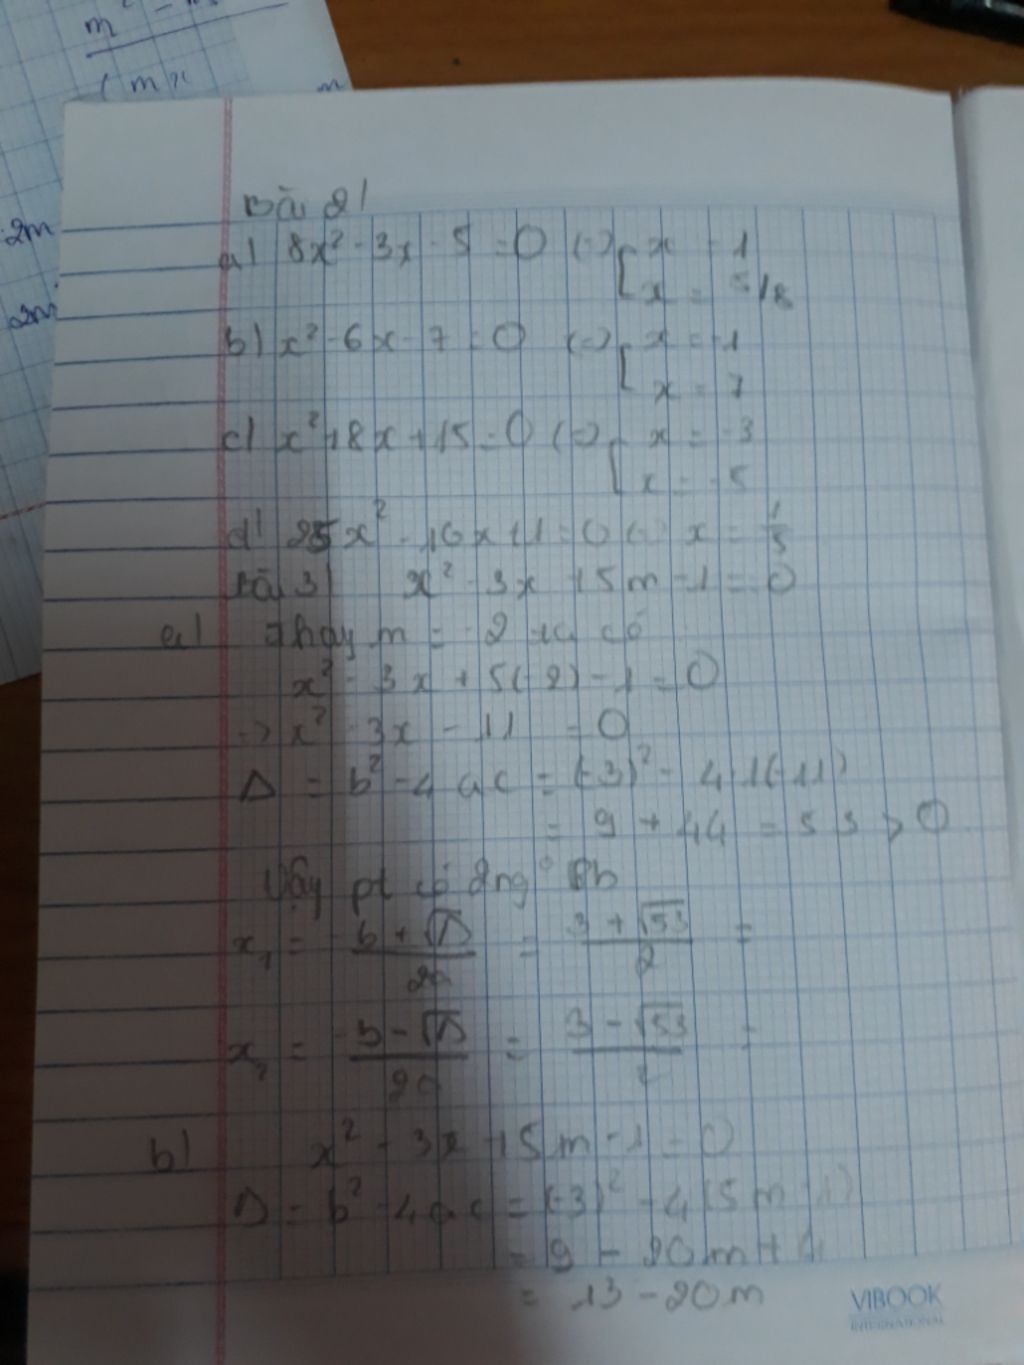 m² -
(mx
2m
2m
Bài 2/
a) 8x² - 3x - 5 = 0 (=) [ x = 1
x = -5/8
b) x² - 6x - 7 = 0 (=) [ x = -1
x = 7
c) x² + 8x + 15 = 0 (=) [ x = -3
x = -5
d) 25x² - 10x + 1 = 0 (=) x = 1/5
Bài 3/ x² - 3x + 5m - 1 = 0
a) Thay m = -2 ta có
x² - 3x + 5(-2) - 1 = 0
=> x² - 3x - 11 = 0
Δ = b² - 4ac = (-3)² - 4.1(-11)
= 9 + 44 = 53 > 0
Vậy pt có 2 ng° pb
x₁ = (-b + √Δ)/2a = (3 + √53)/2 =
x₂ = (-b - √Δ)/2a = (3 - √53)/2 =
b) x² - 3x + 5m - 1 = 0
Δ = b² - 4ac = (-3)² - 4(5m - 1)
= 9 - 20m + 4
= 13 - 20m
VIBOOK
INTERNATIONAL